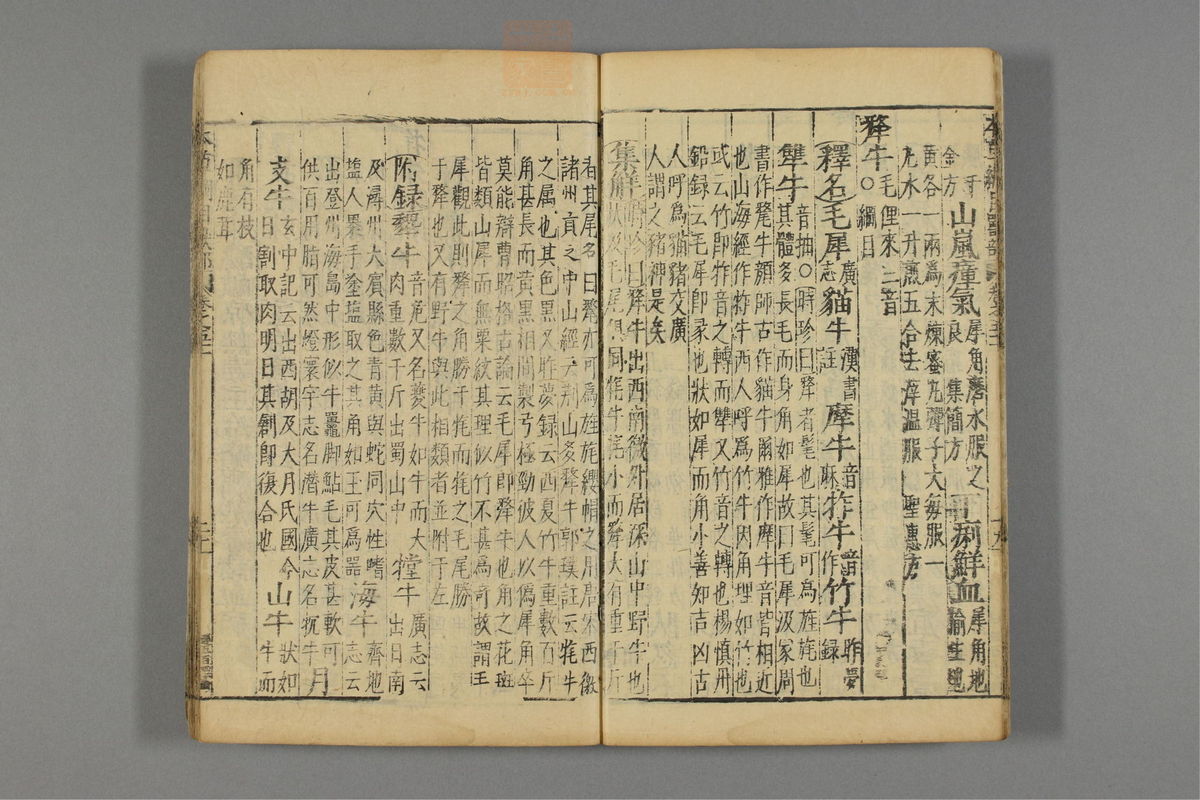 金方 山嵐瘴氣 犀角磨水服之良 集簡方 下痢鮮血 犀角地榆生地
黃各一兩為末煉蜜丸彈子大每服一
丸水一升煎五合去滓溫服 聖惠方
犛牛 毛俚來三音 ○綱目
釋名 毛犀 廣志 貓牛 漢書註 摩牛 音麻 㸲牛 音作 竹牛 昨夢錄
犨牛 音抽○時珍曰犛者髦也其髦可為旌旄也
其體多長毛而身角如犀故曰毛犀汲冢周
書作氂牛顏師古作貓牛爾雅作摩牛音皆相近
也山海經作㸲牛西人呼為竹牛因角理如竹也
或云竹即㸲音之轉而犨又竹音之轉也楊慎丹
鉛錄云毛犀即彖也狀如犀而角小善知吉凶古
人呼為貓豬交廣
人謂之豬神是矣
集解 時珍曰犛牛出西南徼外居深山中野牛也
狀及毛尾俱同牦牛牦小而犛大有重千斤
者其尾名曰犛亦可為旌旄纓帽之用唐宋西徼
諸州貢之中山經云荆山多犛牛郭璞註云牦牛
之屬也其色黑又昨夢錄云西夏竹牛重數百斤
角甚長而黃黑相間製弓極勁彼人以偽犀角卒
莫能辯曹昭格古論云毛犀即犛牛也用之花斑
皆類山犀而無粟紋其理似竹不甚為奇故謂毛
犀觀此則犛之角勝于牦而牦之毛尾勝
于犛也又有野牛與此相類者並附于左
附錄 犩牛 音危又名夔牛如牛而大
肉重數千斤出蜀山中 㹊牛 廣志云
出日南
及潯州大賓縣色青黃與蛇同穴性嗜
鹽人裹手塗鹽取之其角如玉可為器 海牛 齊地志云
出登州海島中形似牛鼉腳鮎毛其皮甚軟可
供百用脂可然燈寰宇志名潛牛廣志名㸹牛 月
支牛 玄中記云出西胡及大月氏國今
日割取肉明日其創即復合也 山牛 狀如
牛而
角有枝
如鹿茸